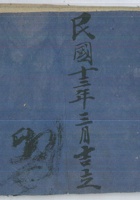 民國十三年三月十三立